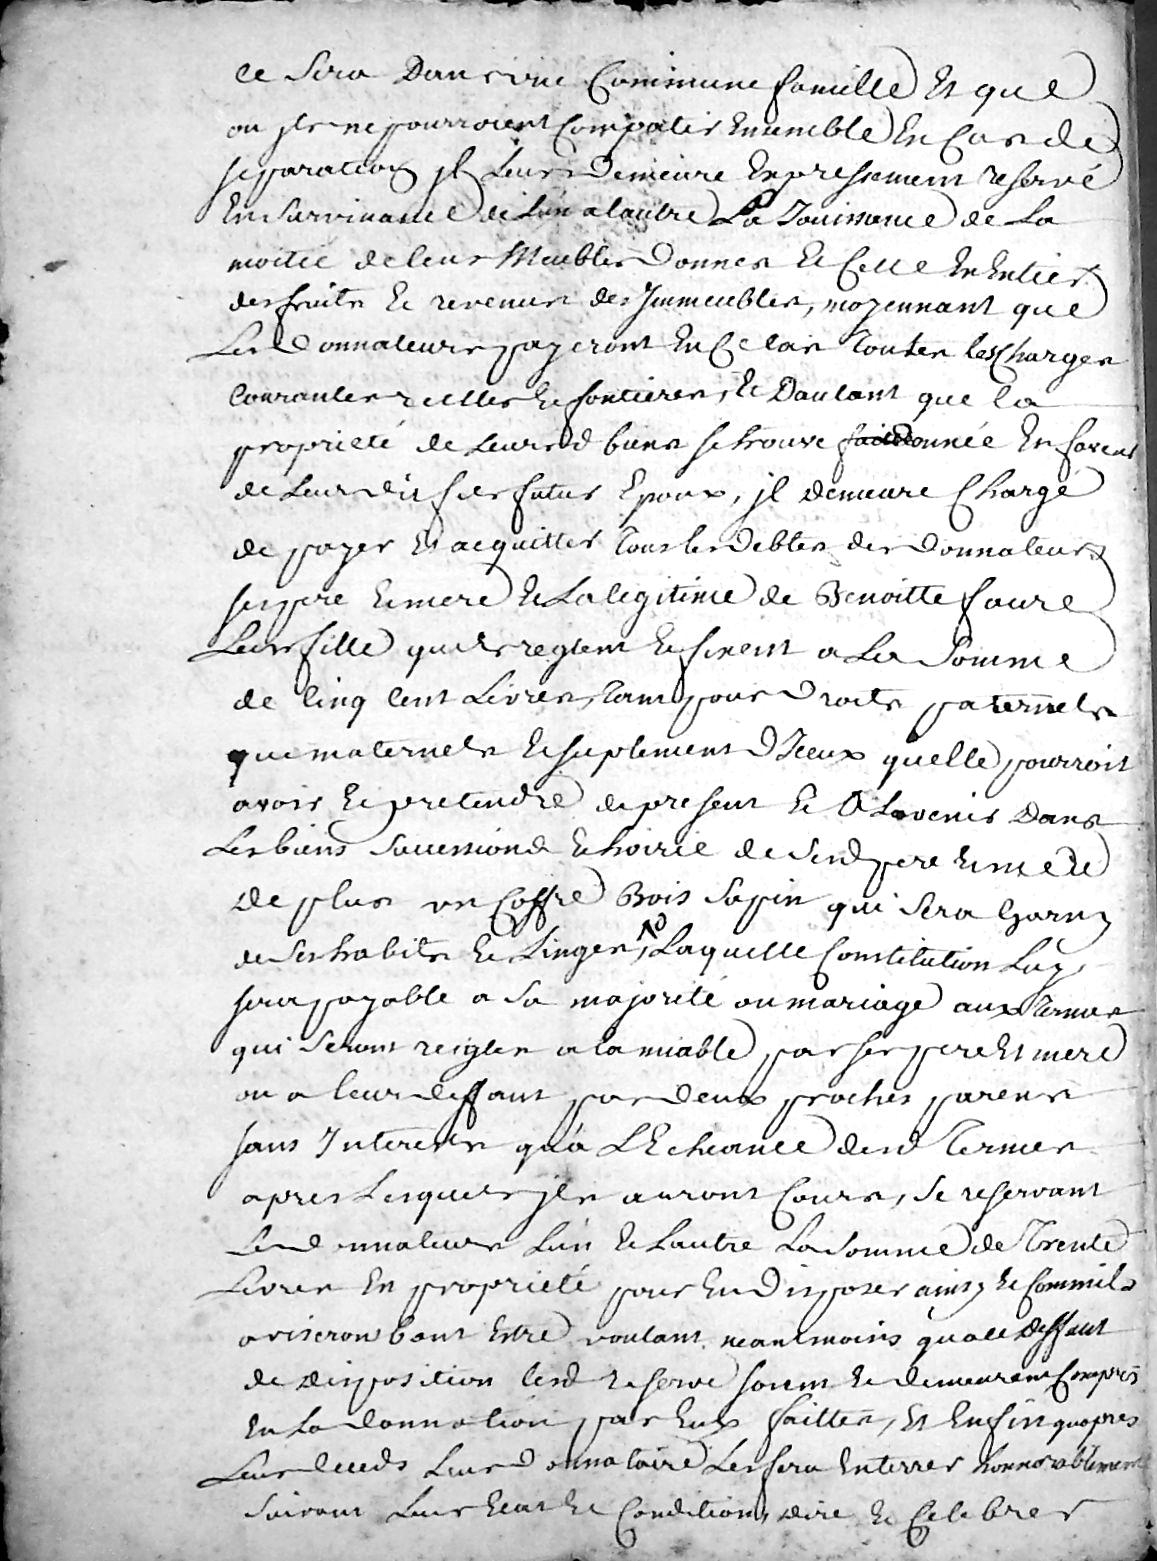 ce sera Dans une Commune famille Et que
ou jls ne pourroient Compatir Ensemble En Cas de
separation jl Leur Demeure Expressement reservé
En survivance de Lun a lautre La Jouissance de La
moitié de leurs Meubles Donnes Et Celle En Entier
des fruits Et revenus des Jmmeubles, moyennant que
Les Donnateurs payeront En Ce Cas Toutes les Charges
Courantes reelles Et fontieres, Et Dautant que la
proprieté de Leursd biens se trouve donnée En faveur
de Leur dit fils futur Epoux, jl demeure Chargé
de payer Et acquitter Tous les Debtes des Donnateurs
ses pere Et mere Et La legitime de Benoitte faure
Leur fille quils reglent Et fixent a La Somme
de Cinq Cent Livres, Tant pour Droits paternels
que maternels Et suplement Diceux quelle pourroit
avoir Et pretendre de present Et a Lavenir Dans
Les biens Successions Et hoirie de Sesd pere Et mere
De plus un Coffre Bois Sapin qui Sera Garny
de Ses habits Et Linges, Laquelle Constitution Luy
sera payable a Sa majorité ou mariage aux Termes
qui Seront reigles a lamiable par ses pere Et mere
ou a leur deffaut par deux proches parents
sans Interests qu'a LEcheance desd Termes
apres Lesquels jls auront Cours, Se reservant
Les Donnateurs Lun Et Lautre La Somme de Trente
Livres En proprieté pour En Disposer ainsy Et Comm'ils
aviseront bont Estre voulant neanmoins qua ce Deffaut
de Disposition lesd reserve soient Et demeurent Compris
En La donnation par Eux faittes, Et Enfin quapres
Leur deceds Leur Donnataire Les fera Enterrer honnorablement
Suivant Leur Etat Et Condition, dire Et Celebrer